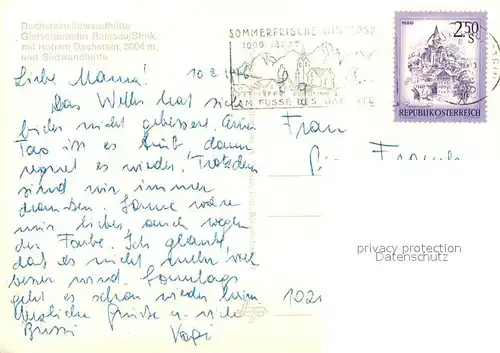 Dachsteinsüdwandhütte
Gletscherbahn Ramsau/Stmk.
mit Hohem Dachstein, 3004 m,
und Südwandhütte
SOMMERFRISCHE WINTERSP
AM FUSSE DES DACHSTE
2.50
S
MURAU
REPUBLIK ÖSTERREICH
Liebe Mama!
Das Wetter hat sich
bisher nicht gebessert. Einen
Tag ist es trüb dann
regnet es wieder. Trotzdem
sind wir immer
draussen. Sonne wäre
mir lieber, auch wegen
der Farbe. Ich glaube,
daß es nicht mehr viel
besser wird. Sonntags
geht es schon wieder heim.
Herzliche Grüße u. viele
Bussi
Frau
privacy protection
Datenschutz
102